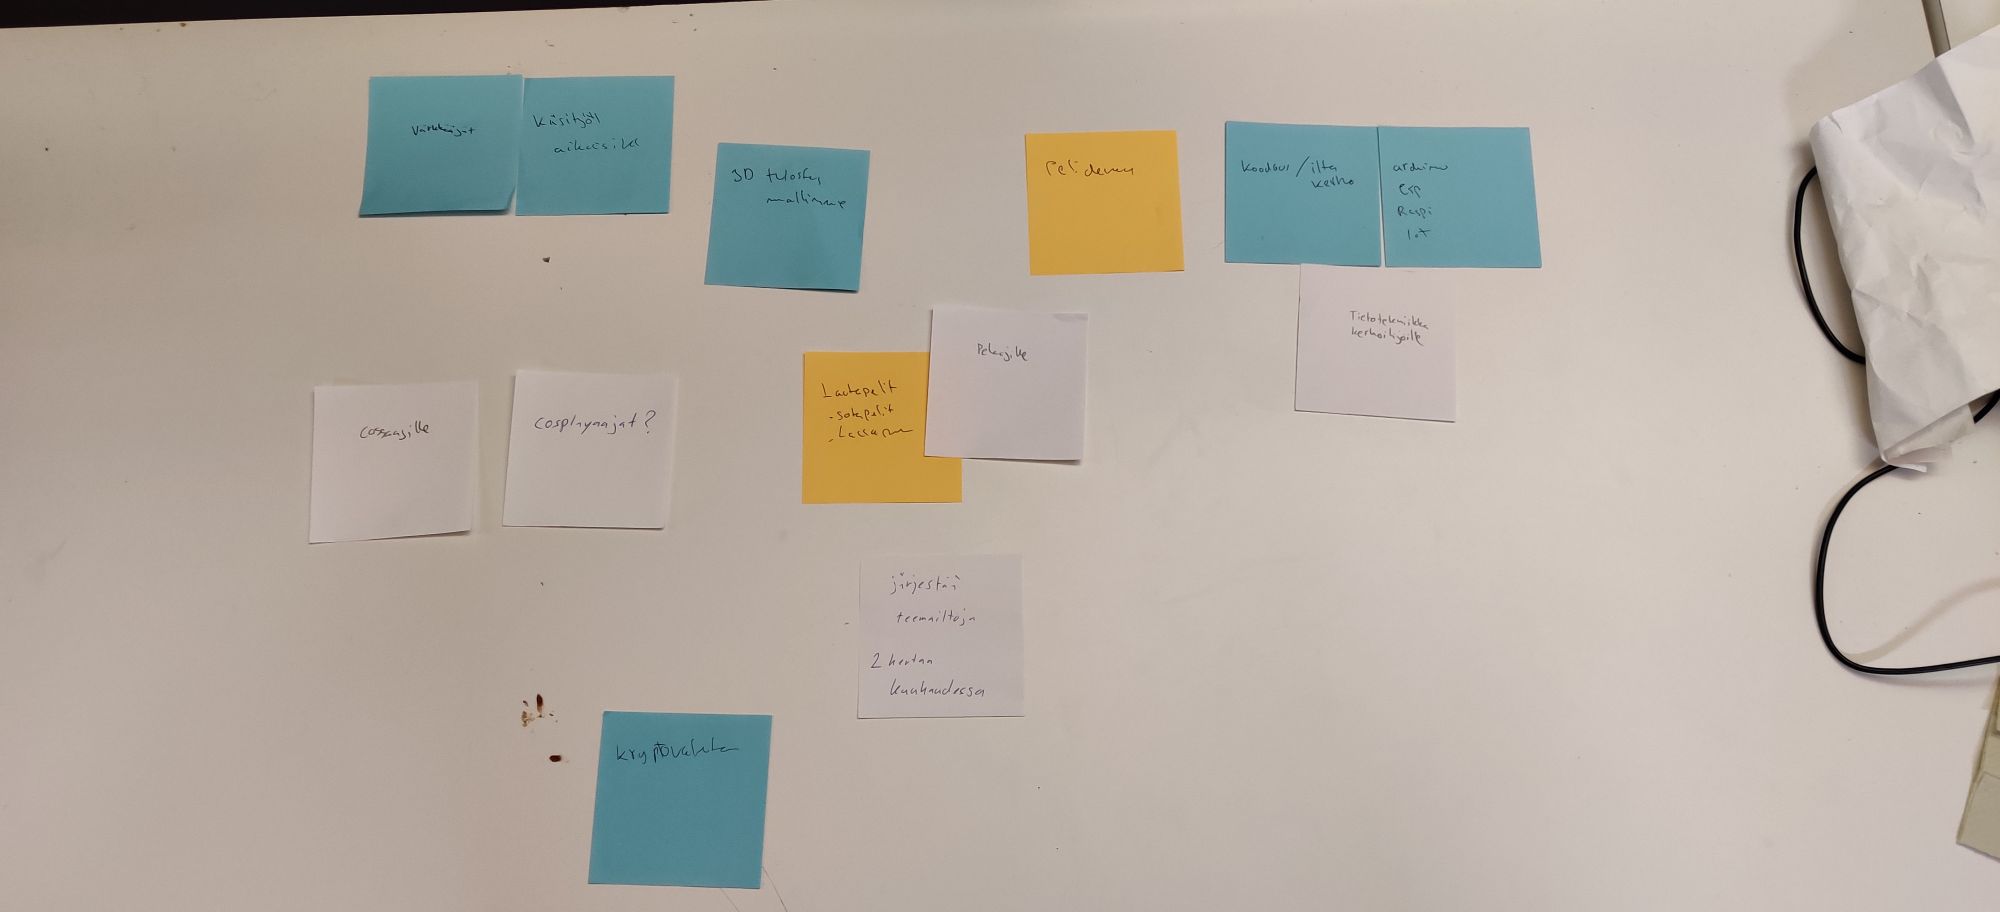 Värkkääjät
Käsityöt
3D tulostus
mallinnus
Peli
koodaus / ilta
kerho
arduino
esp
Raspi
Iot
Tietotekniikka
kerhoilijoille
Pelaajille
Lautapelit
- sotapelit
cossaajille
cosplayaajat?
järjestää
teemailtoja
2 kertaa
kuukaudessa